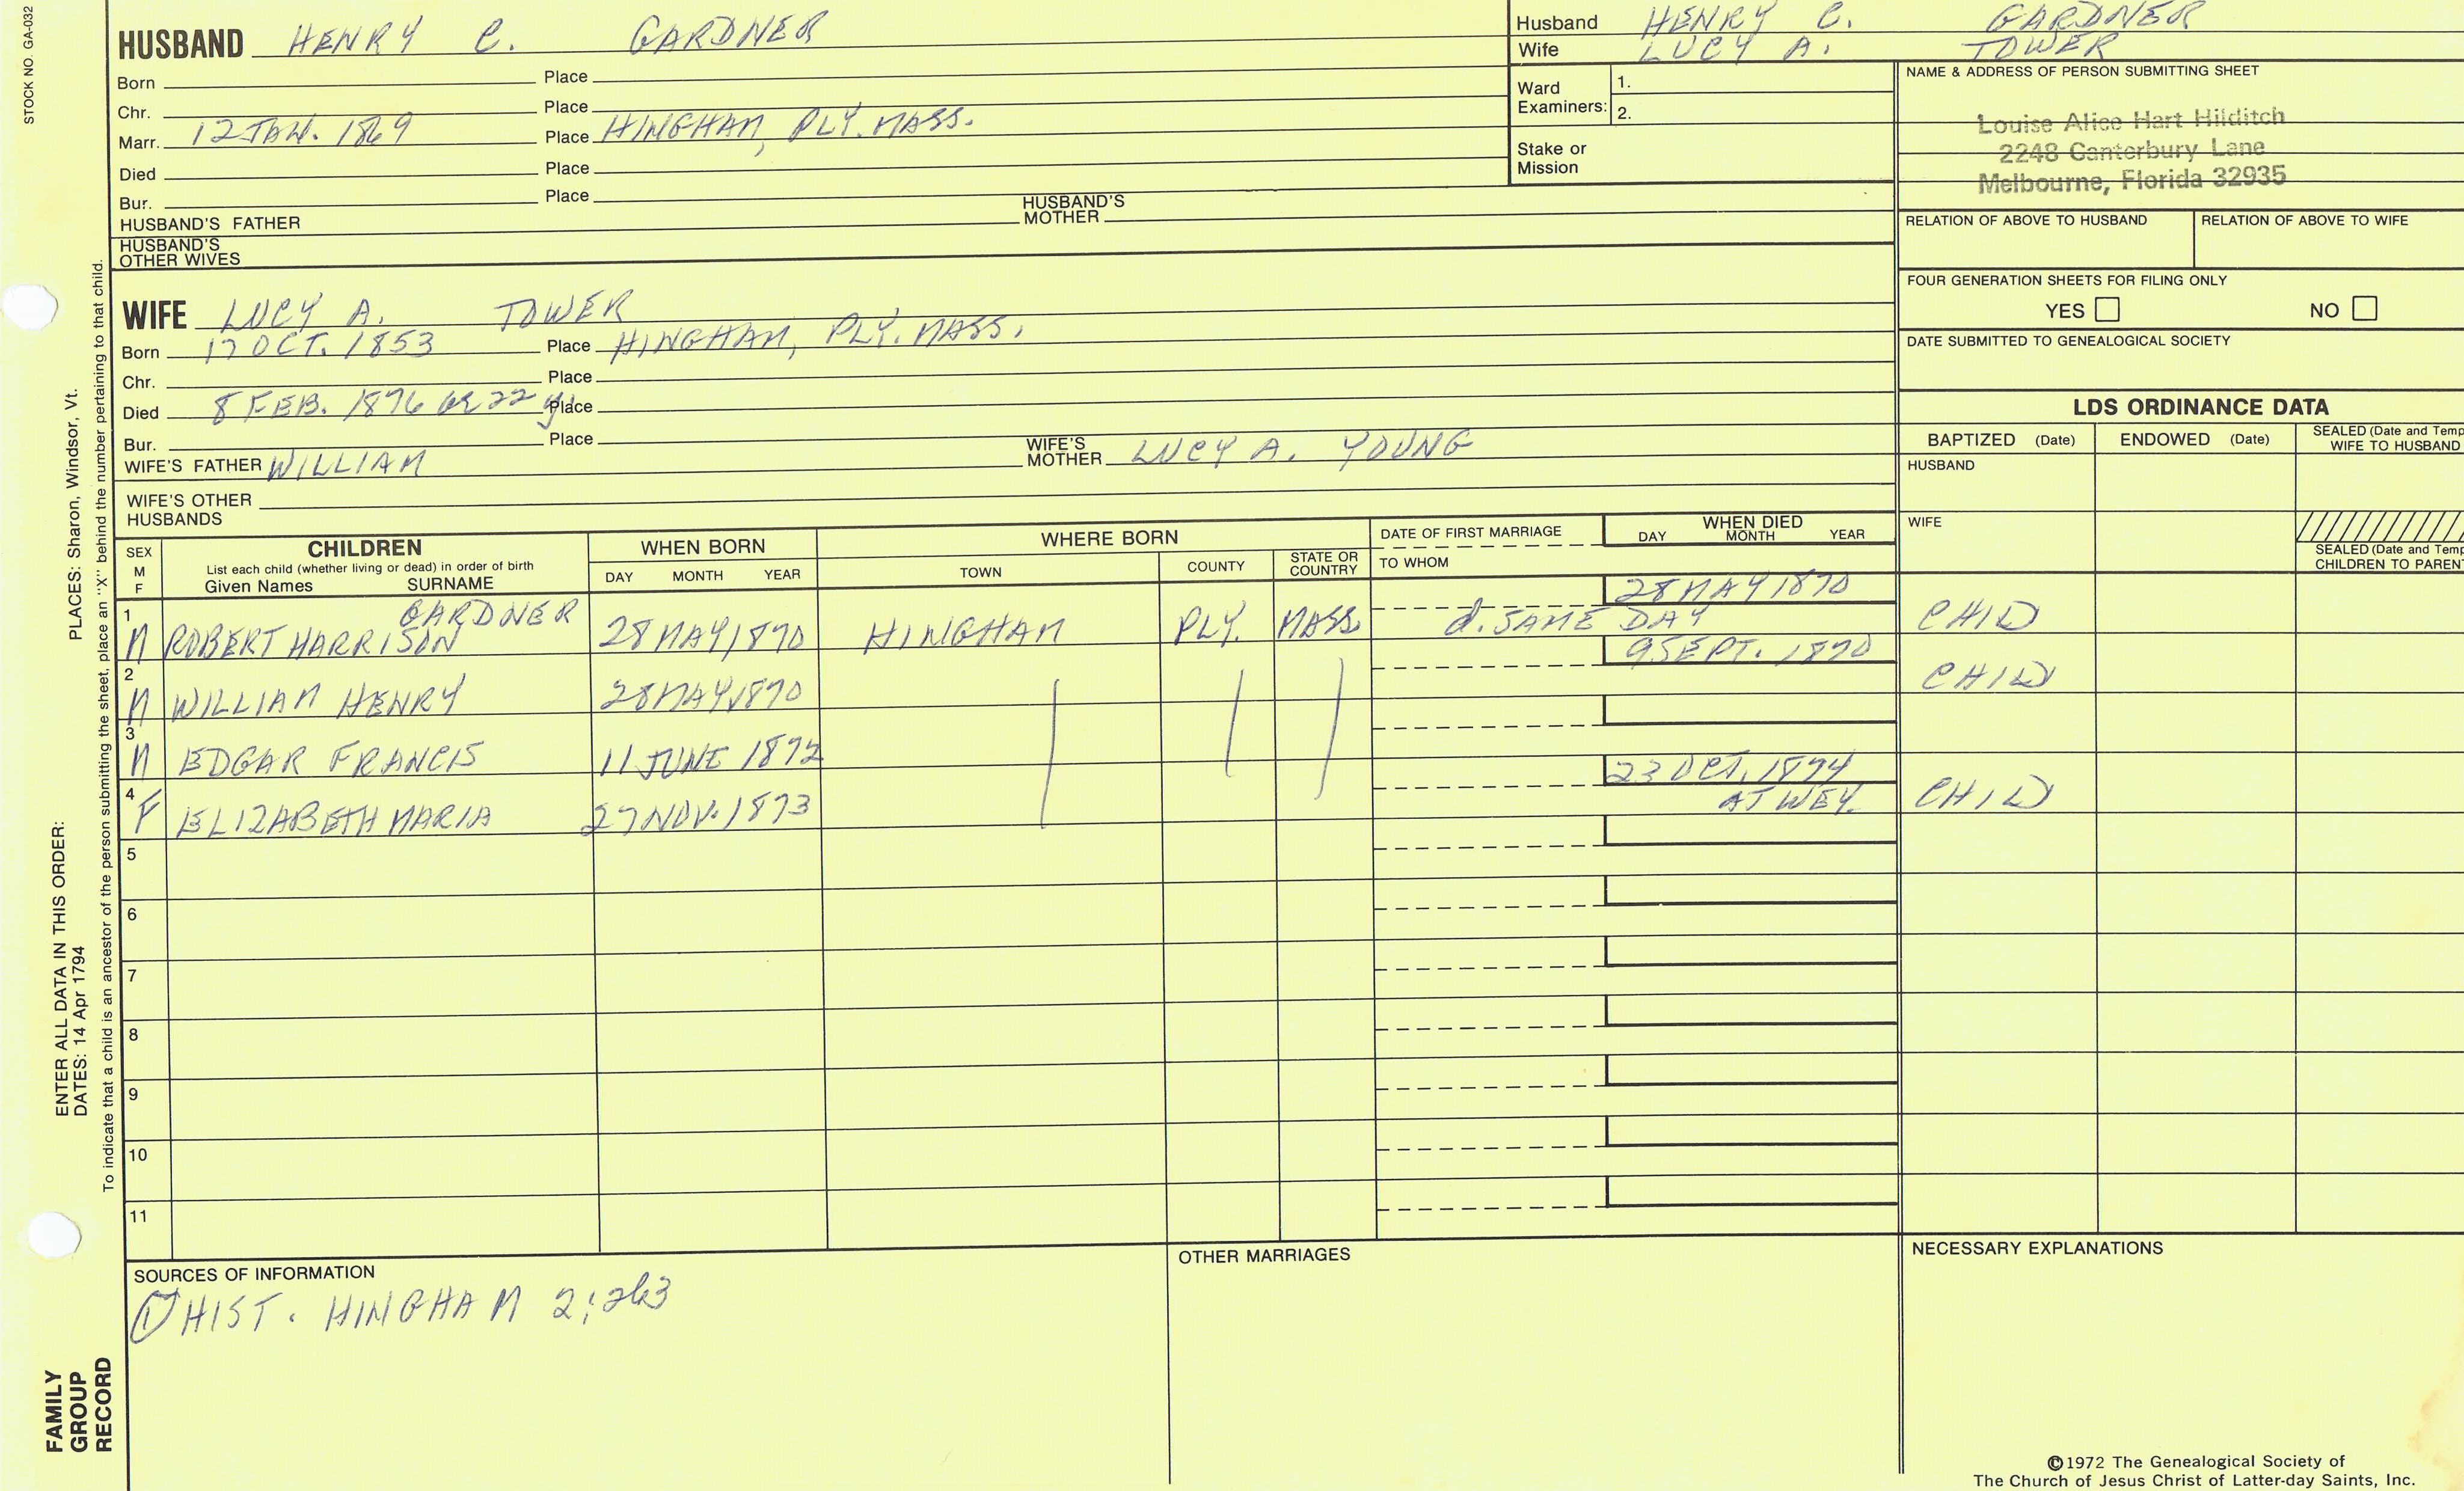 STOCK NO. GA-032
HUSBAND HENRY C. GARDNER
Born Place
Chr. Place
Marr. 12 JAN. 1869 Place HINGHAM, PLY. MASS.
Died Place
Bur. Place
HUSBAND'S FATHER HUSBAND'S MOTHER
HUSBAND'S OTHER WIVES
WIFE LUCY A. TOWER
Born 17 OCT. 1853 Place HINGHAM, PLY. MASS.
Chr. Place
Died 8 FEB. 1876 ae 22 y. Place
Bur. Place
WIFE'S FATHER WILLIAM WIFE'S MOTHER LUCY A. YOUNG
WIFE'S OTHER HUSBANDS
Husband HENRY C. GARDNER
Wife LUCY A. TOWER
Ward Examiners: 1.
2.
Stake or Mission
NAME & ADDRESS OF PERSON SUBMITTING SHEET
Louise Alice Hart Hilditch
2248 Canterbury Lane
Melbourne, Florida 32935
RELATION OF ABOVE TO HUSBAND RELATION OF ABOVE TO WIFE
FOUR GENERATION SHEETS FOR FILING ONLY
YES NO
DATE SUBMITTED TO GENEALOGICAL SOCIETY
LDS ORDINANCE DATA
BAPTIZED (Date) ENDOWED (Date) SEALED (Date and Temp
WIFE TO HUSBAND
HUSBAND
WIFE
SEALED (Date and Temp
CHILDREN TO PARENT
SEX
M
F
CHILDREN
List each child (whether living or dead) in order of birth
Given Names SURNAME
WHEN BORN
DAY MONTH YEAR
WHERE BORN
TOWN COUNTY STATE OR COUNTRY
DATE OF FIRST MARRIAGE
TO WHOM
WHEN DIED
DAY MONTH YEAR
GARDNER 28 MAY 1870
1 M ROBERT HARRISON 28 MAY 1870 HINGHAM PLY. MASS. d. SAME DAY CHILD
9 SEPT. 1870
2 M WILLIAM HENRY 28 MAY 1870 CHILD
3 M EDGAR FRANCIS 11 JUNE 1872
23 OCT. 1874
4 F ELIZABETH MARIA 27 NOV. 1873 AT WEY. CHILD
5
6
7
8
9
10
11
SOURCES OF INFORMATION
① HIST. HINGHAM 2:263
OTHER MARRIAGES
NECESSARY EXPLANATIONS
©1972 The Genealogical Society of
The Church of Jesus Christ of Latter-day Saints, Inc.
FAMILY
GROUP
RECORD
ENTER ALL DATA IN THIS ORDER:
DATES: 14 Apr 1794
PLACES: Sharon, Windsor, Vt.
To indicate that a child is an ancestor of the person submitting the sheet, place an "X" behind the number pertaining to that child.